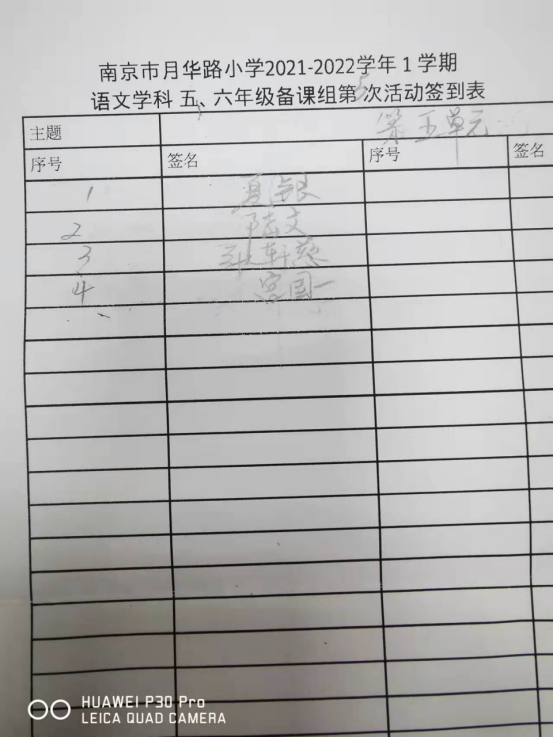 南京市月华路小学2021-2022学年 1 学期
语文学科 五、六年级备课组第5次活动签到表
主题 第五单元
序号 签名 序号 签名
1
2 陈文
3 轩慈
4 宫国一
HUAWEI P30 Pro
LEICA QUAD CAMERA